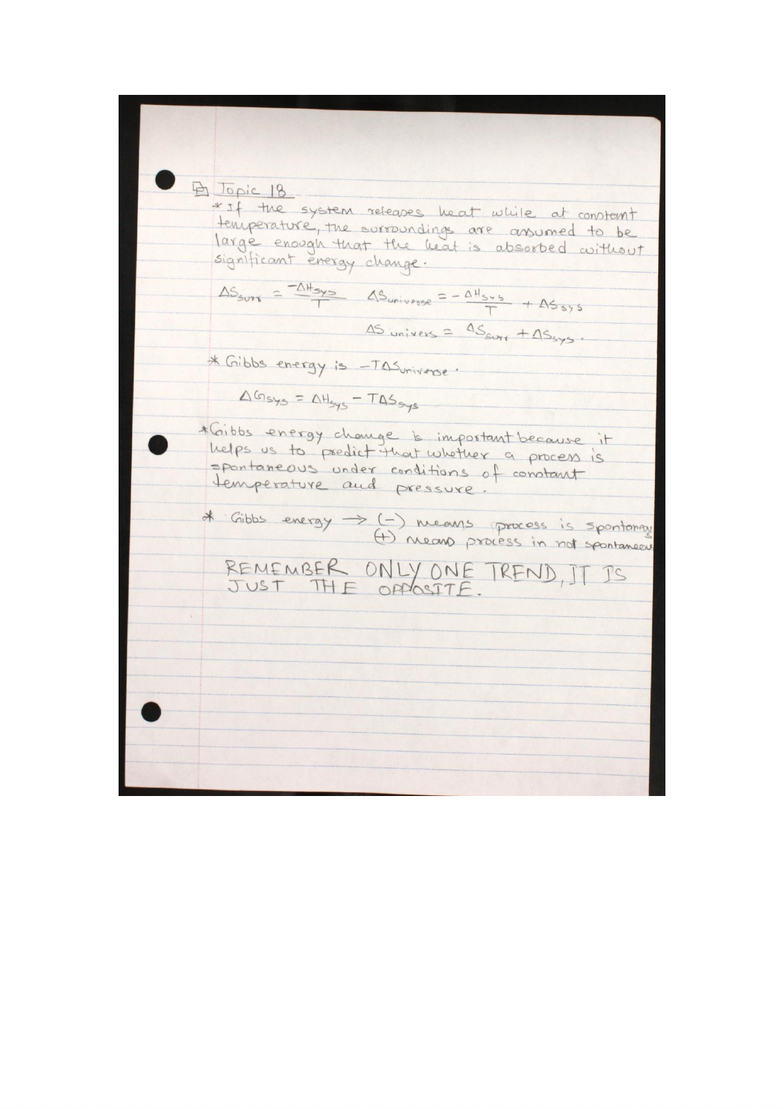 Topic 18
* If the system releases heat while at constant
temperature, the surroundings are assumed to be
large enough that the heat is absorbed without
significant energy change.
ΔSsurr = -ΔHsys/T   ΔSuniverse = - ΔHsys/T + ΔSsys
ΔSunivers = ΔSsurr + ΔSsys.
* Gibbs energy is -TΔSuniverse.
ΔGsys = ΔHsys - TΔSsys
* Gibbs energy change is important because it
helps us to predict that whether a process is
spontaneous under conditions of constant
temperature and pressure.
* Gibbs energy → (-) means process is spontaneous
(+) means process in not spontaneous
REMEMBER ONLY ONE TREND, IT IS
JUST THE OPPOSITE.